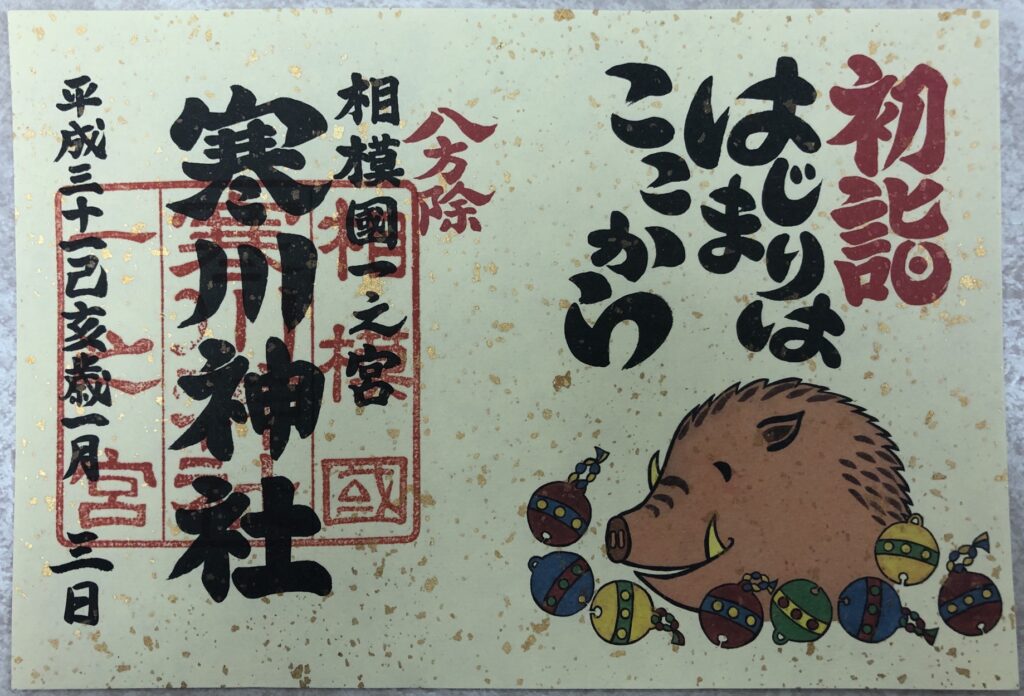 初詣
はじまりは
ここから
八方除
相模國一之宮
寒川神社
平成三十一己亥歳一月 三日
相模國
寒川神社
一之宮